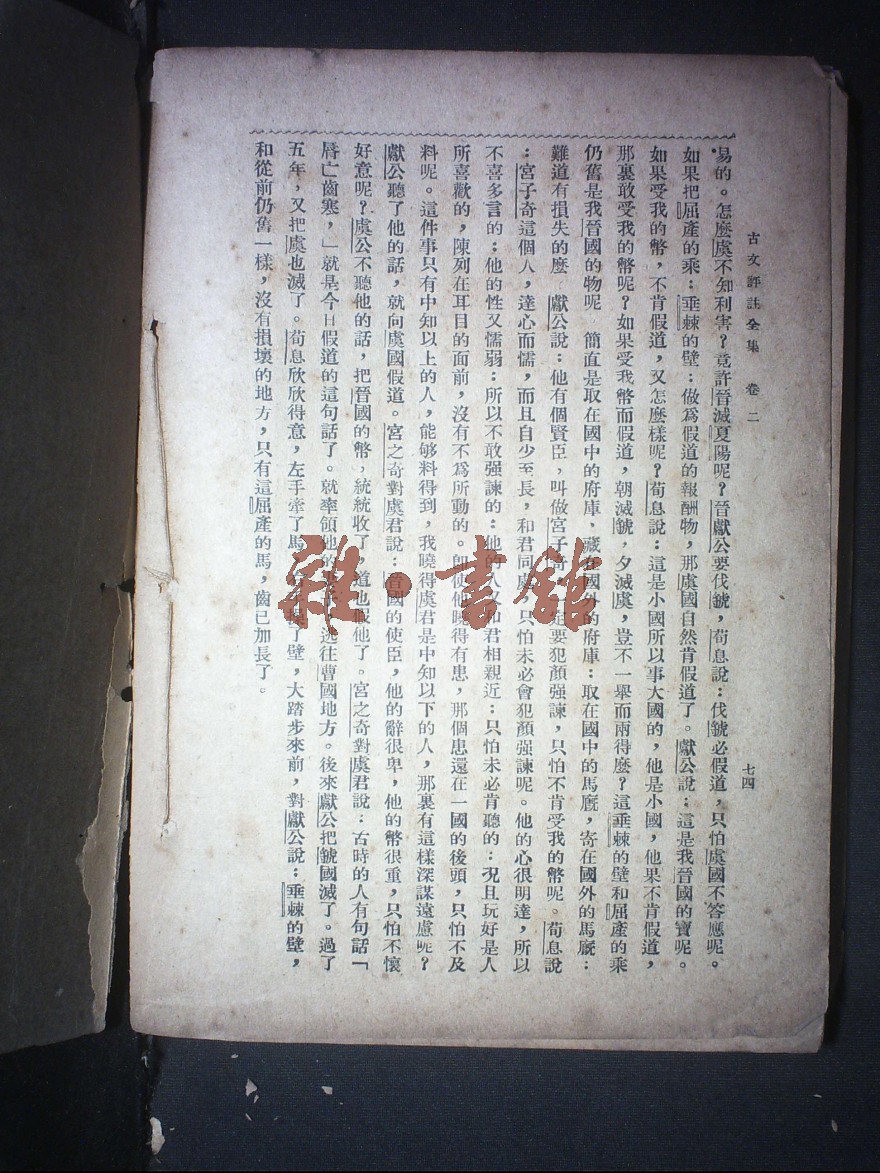 古文評註全集 卷二 七四
易的。怎麼虞不知利害?竟許晉滅夏陽呢?晉獻公要伐虢,荀息說:伐虢必假道,只怕虞國不答應呢。
如果把屈產的乘:垂棘的壁:做為假道的報酬物,那虞國自然肯假道了。獻公說:這是我晉國的寶呢。
如果受我的幣,不肯假道,又怎麼樣呢?荀息說:這是小國所以事大國的,他是小國,他果不肯假道,
那裏敢受我的幣呢?如果受我幣而假道,朝滅虢,夕滅虞,豈不一舉而兩得麼?這垂棘的壁和屈產的乘
仍舊是我晉國的物呢 簡直是取在國中的府庫,藏在國外的府庫:取在國中的馬廐,寄在國外的馬廐:
難道有損失的麼 獻公說:他有個賢臣,叫做宮子奇 定要犯顏強諫,只怕不肯受我的幣呢。荀息說
:宮子奇這個人,達心而懦,而且自少至長,和君同處,只怕未必會犯顏強諫呢。他的心很明達,所以
不喜多言的:他的性又懦弱:所以不敢强諫的:他的人又和君相親近:只怕未必肯聽的:況且玩好是人
所喜歡的,陳列在耳目的面前,沒有不為所動的。卽使他曉得有患,那個患還在一國的後頭,只怕不及
料呢。這件事只有中知以上的人,能够料得到,我曉得虞君是中知以下的人,那裏有這樣深謀遠慮呢?
獻公聽了他的話,就向虞國假道。宮之奇對虞君說:晉國的使臣,他的辭很卑,他的幣很重,只怕不懷
好意呢?虞公不聽他的話,把晉國的幣,統統收了,道也假他了。宮之奇對虞君說:古時的人有句話「
唇亡齒寒,」就是今日假道的這句話了。就率領他的 逃往曹國地方。後來獻公把虢國滅了。過了
五年,又把虞也滅了。荀息欣欣得意,左手牽了馬 操了壁,大踏步來前,對獻公說:垂棘的壁,
和從前仍舊一樣,沒有損壞的地方,只有這屈產的馬,齒已加長了。
雜·書館